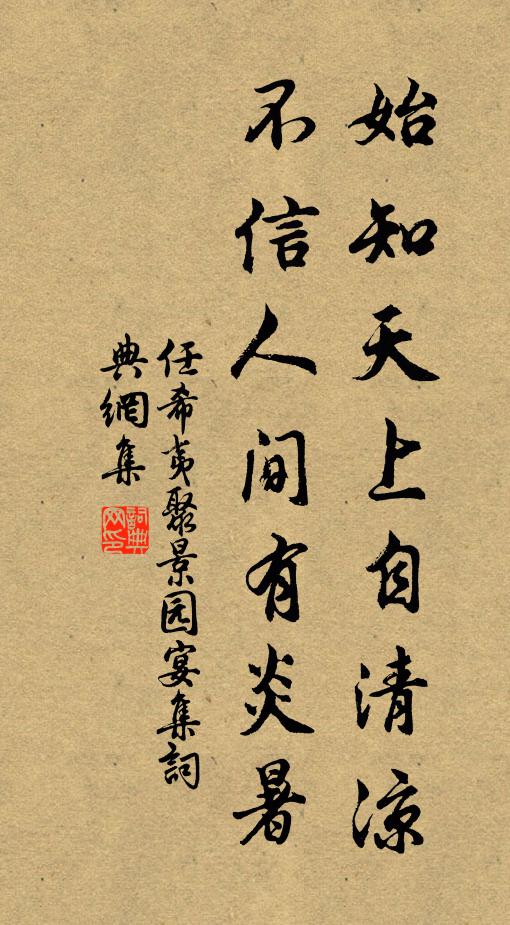 始知天上自清凉
不信人间有炎暑
任希夷聚景园宴集詞
典網集
詞典网印